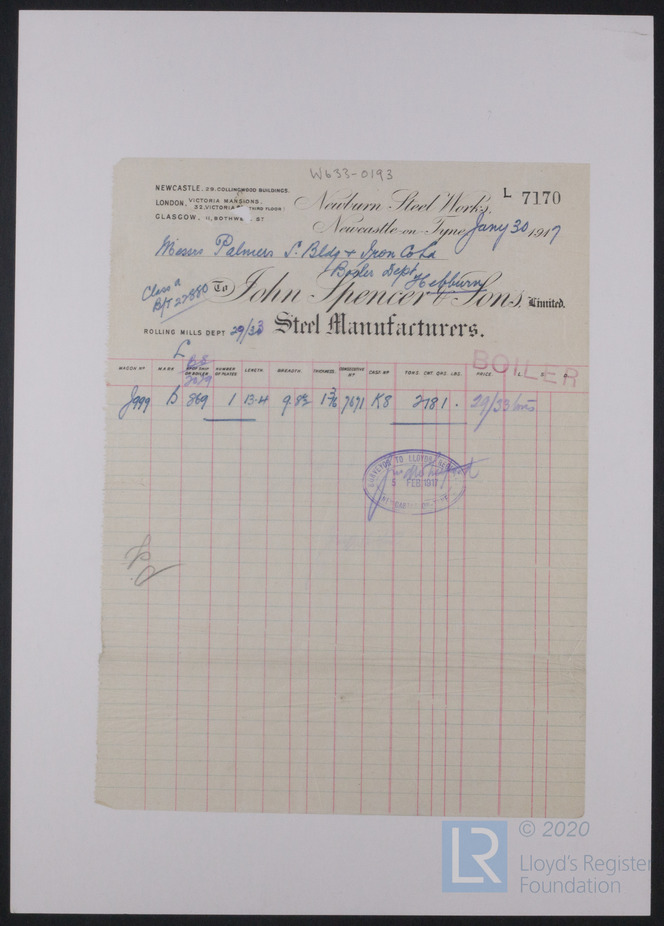 W633-0193
NEWCASTLE, 29, COLLINGWOOD BUILDINGS.
LONDON, VICTORIA MANSIONS,
32, VICTORIA THIRD FLOOR
GLASGOW, 11, BOTHW ST
L 7170
Newburn Steel Works,
Newcastle-on-Tyne, Jany 30 1917
Messrs Palmers S. Bldg & Iron Co Ld
Boiler Dept
Hebburn
Class a
B/T 27880
To John Spencer & Sons, Limited.
ROLLING MILLS DEPT 29/33 Steel Manufacturers.
BOILER
WAGON No MARK OR BOILER NUMBER OF PLATES LENGTH. BREADTH. THICKNESS. CONSECUTIVE No CAST No TONS. CWT. QRS. LBS. PRICE. £ S. D.
J999 869 1 13.4 7671 K8 2781 29/33
SURVEYOR TO LLOYDS REGISTER
5 FEB 1917
NEWCASTLE-ON-TYNE
© 2020
LR Lloyd's Register
Foundation